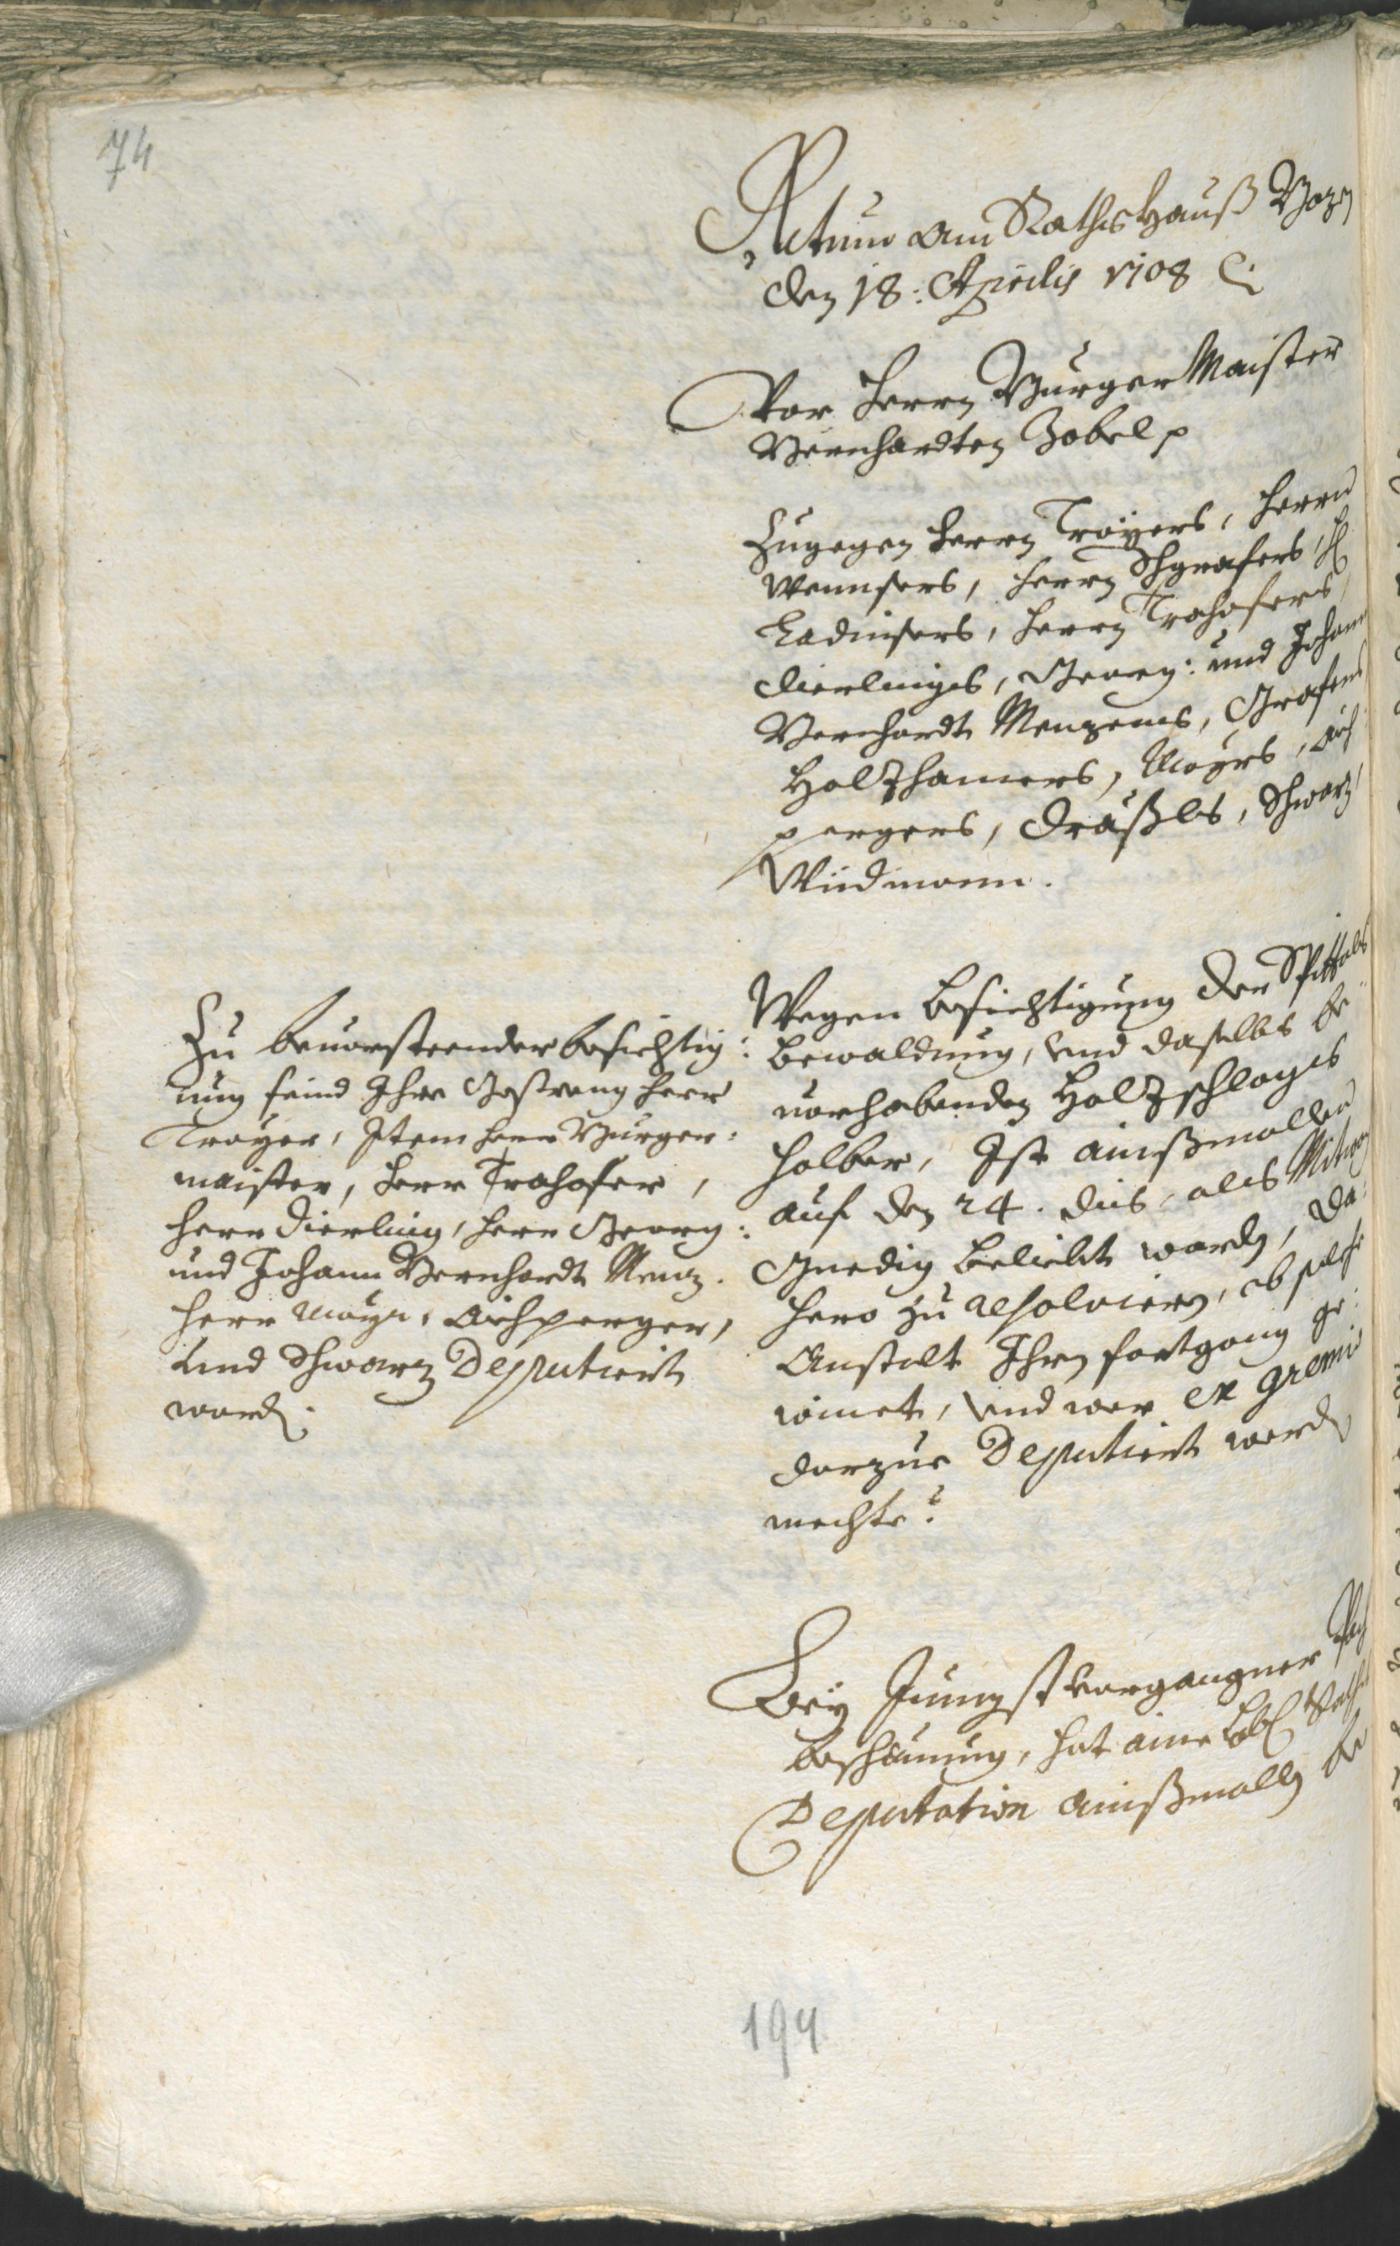 74
Actum am RathsHauß Bozen
den 18: Aprilis 1708
Vor Herrn BurgerMaister
Bernhardten Zobel p
Zugegen Herrn Troyers, Herrn
Wennsers, Herrn Schgrafers, H
Ladinsers, Herrn Trahofers,
Dierlings, Georg: und Johann
Bernhardt Menzens, Grafens
Holzhamers, Mayrs, Aich
pergers, Draußls, Schwarz,
Widmann.
Wegen besichtigung der Spittals
bewaldung, und daselbs be¨
uorhabenden Holzschlages
halber, Ist ainßmallen
auf den 24. dis, als Mitwoch
Gnedig beliebt worden, da:
hero zu resolviern, ob solche
Anstalt Ihren fortgang ge:
winnet, und wer ex gremio
darzue Deputiert werden
mechte?
Zu beuorsteender besichtig:
ung seind Ihre Gestreng Herr
Troyer, Item Herr Burger:
maister, Herr Trahofer,
Herr Dierling, Herr Georg:
und Johann Bernhardt Menz.
Herr Mayr, Aichperger,
und Schwarz Deputiert
worden.
Bey Jungst vorgangner
beschauung, hat aine Löbl Raths
Deputation ainßmalls be
194